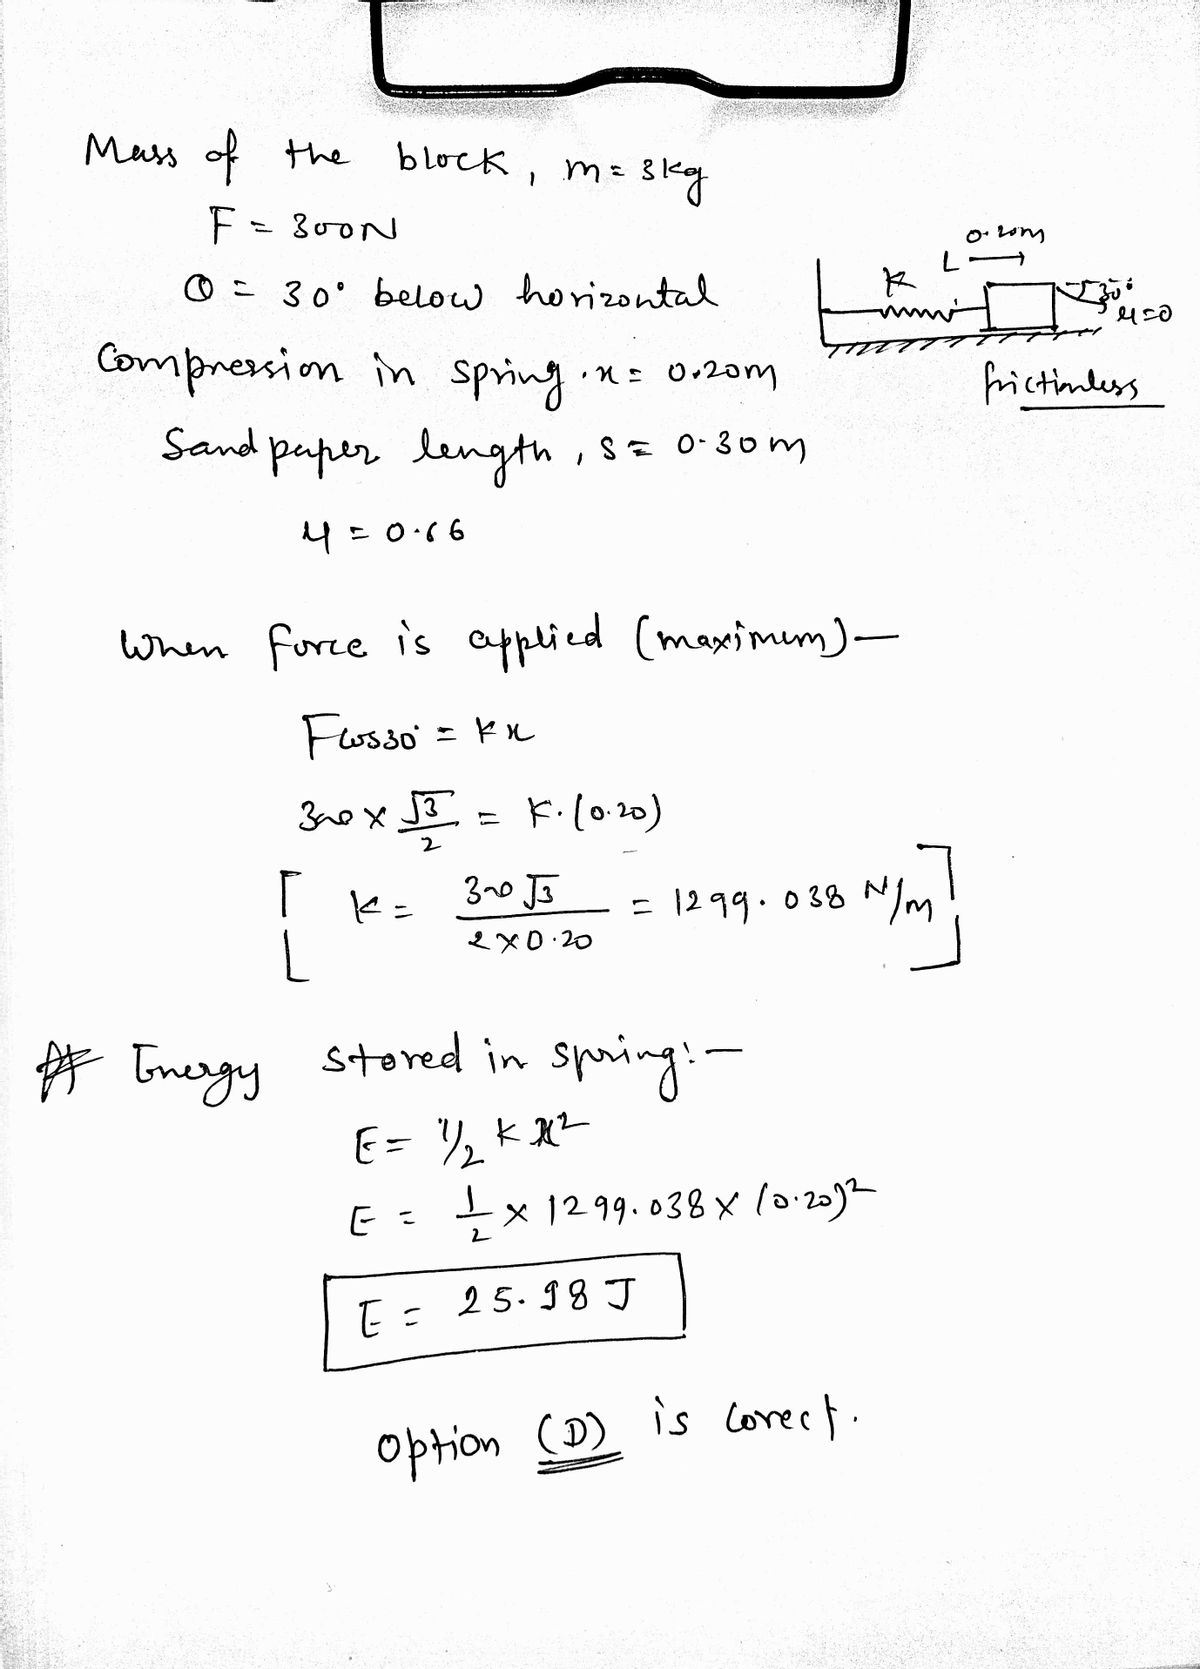 Mass of the block, m = 3kg
F = 300N
θ = 30° below horizontal
Compression in spring. x = 0.20m
Sand paper length, s = 0.30m
μ = 0.66
0.20m
L
K
30°
μ=0
frictionless
When force is applied (maximum) —
Fcos30° = Kx
300 × √3/2 = K.(0.20)
[ K = 300√3 / 2×0.20 = 1299.038 N/m ]
Energy stored in spring:-
E = 1/2 K x²
E = 1/2 × 1299.038 × (0.20)²
E = 25.98 J
Option (D) is corect.